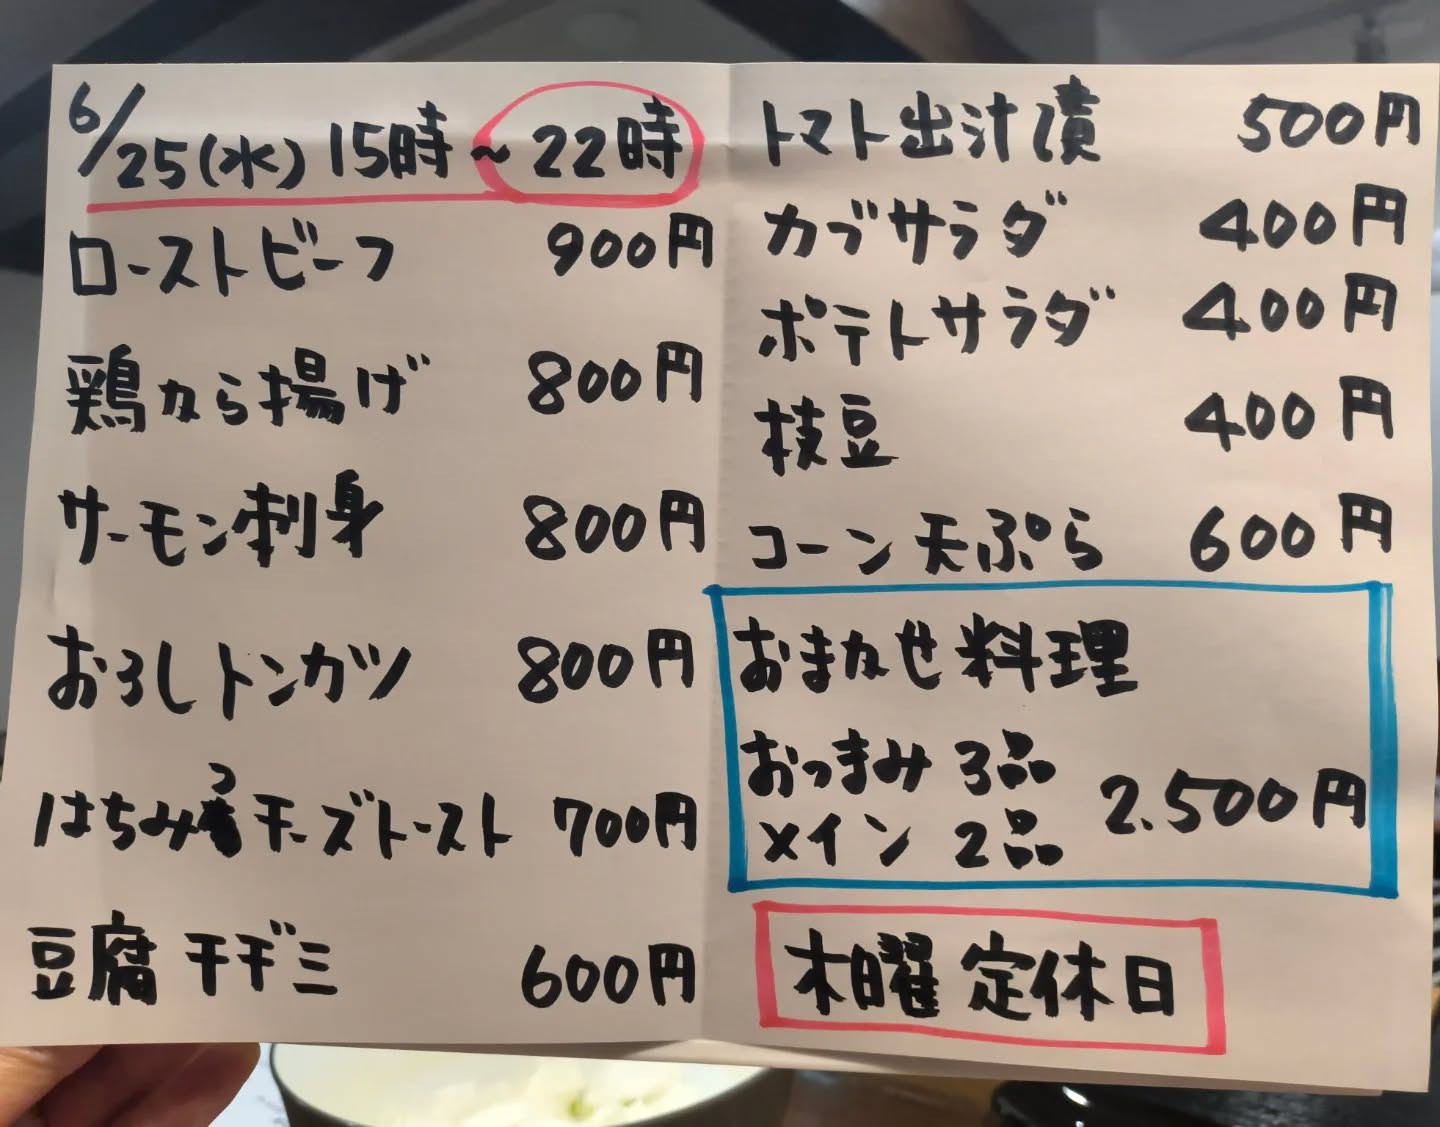 6/25(水) 15時~22時
ローストビーフ 900円
鶏から揚げ 800円
サーモン刺身 800円
おろしトンカツ 800円
はちみつチーズトースト 700円
豆腐チヂミ 600円
トマト出汁漬 500円
カブサラダ 400円
ポテトサラダ 400円
枝豆 400円
コーン天ぷら 600円
おまかせ料理
おつまみ 3品
メイン 2品 2.500円
木曜 定休日